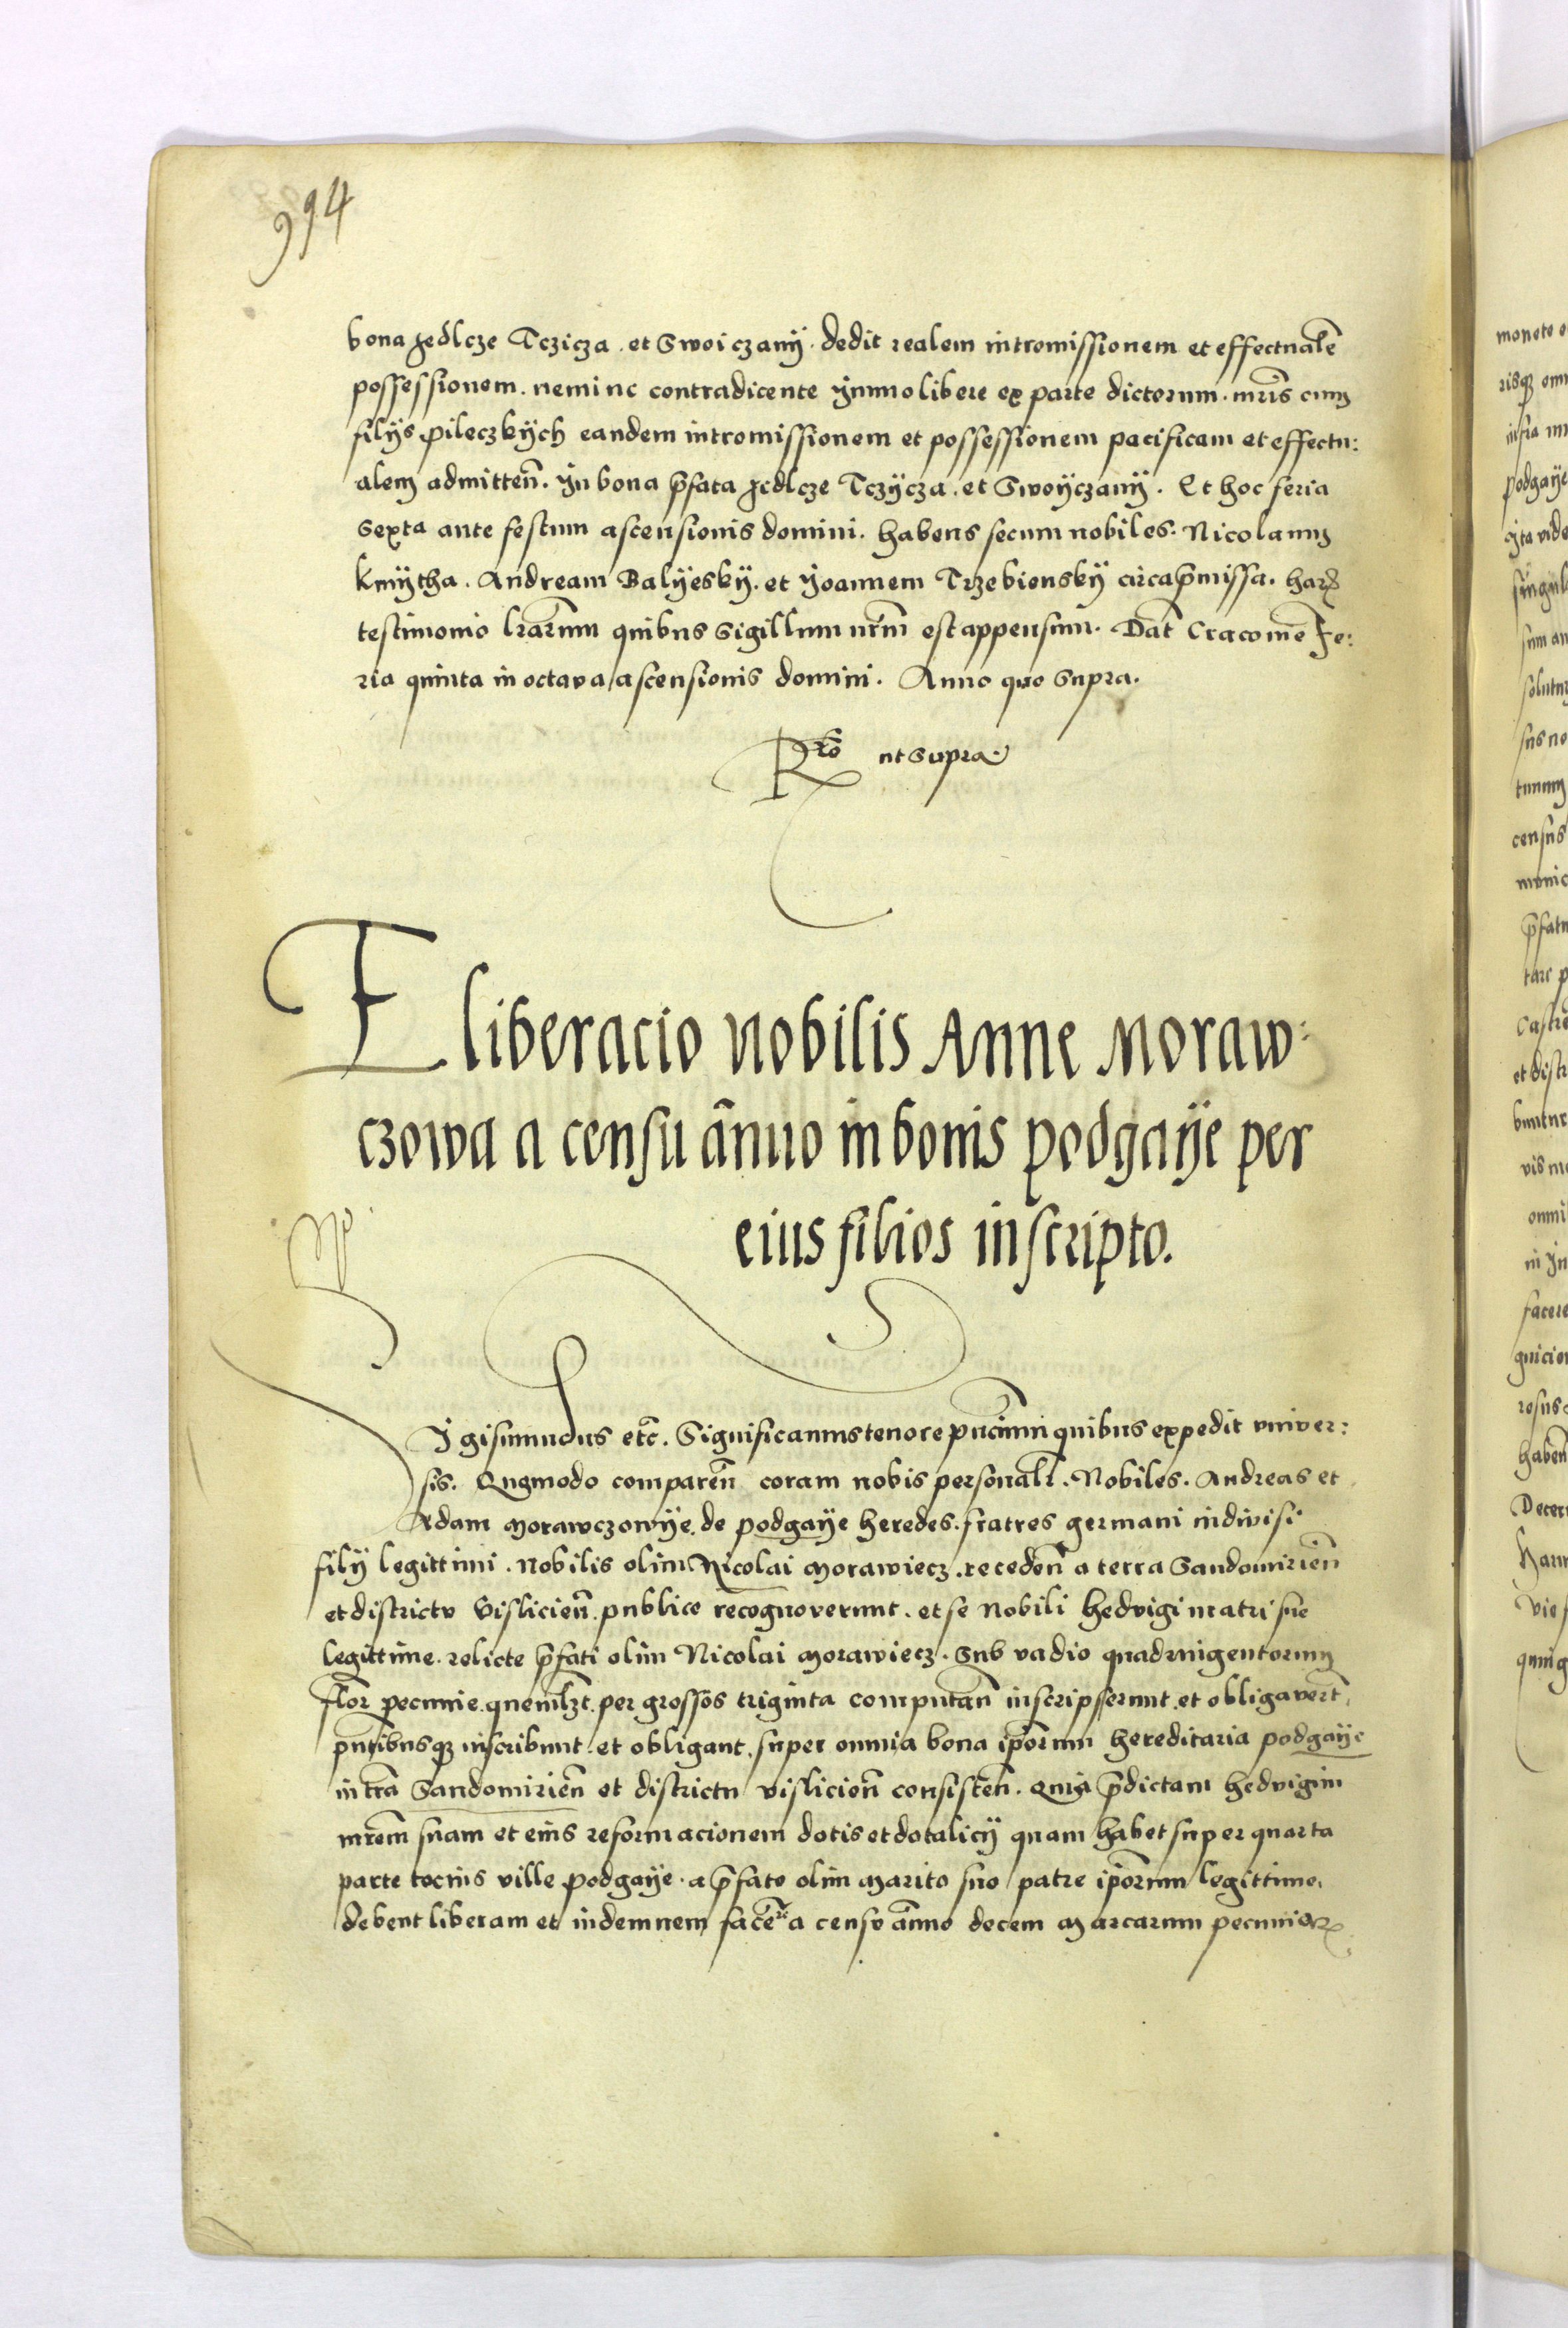 994
bona Jedlcze Tczicza . et Swoiczany . dedit realem intromissionem et effectualē
possessionem . nemine contradicente ymmo libere ex parte dictorum . mr̄is cum
filijs pileczkych eandem intromissionem et possessionem pacificam et effectu:
alem admitteñ . Jn bona p̄fata Jedlcze Tczÿcza . et Swoÿczanÿ . Et hoc feria
sexta ante festum ascensionis domini . habens secum nobiles . Nicolaum
kmÿtha . Andream Balÿeskÿ . et Joannem Trzebienskÿ circa p̄missa . harꝝ
testimonio lr̄arum quibus sigillum nr̄m est appensum . Dat̄ Cracovie Fe:
ria quinta in octava ascensionis domini . Anno quo supra .
Rᵗⁱᵒ ut supra
Eliberacio nobilis Anne Moraw:
czowa a censu ānuo in bonis podgaÿe per
eius filios inscripto.
Sigismundus etc̄ . Significamus tenore p̄ncium quibus expedit univer:
sis . Quomodo compareñ coram nobis personalr̄ . Nobiles . Andreas et
Adam Morawczowÿe . de podgaÿe heredes . fratres germani indivisi
filÿ legittimi . nobilis olim Nicolai Morawiecz . recedeñ a terra Sandomirieñ
et districtu Vislicieñ . publice recognoverunt . et se Nobili hedvigi matri sue
legittime . relicte p̄fati olim Nicolai Morawiecz . Sub vadio quadringentorum
flor̄ pecunie . quemlꝫt . per grossos triginta computañ inscripserunt . et obligaver̄t
pn̄tibusqꝫ inscribunt . et obligant . super omnia bona ip̄orum hereditaria podgaÿe
in tr̄a Sandomirieñ et districtu visliciеñ consisteñ . Quia p̄dictam hedvigim
mr̄em suam et eius reformacionem dotis et dotalicÿ quam habet super quarta
parte tocius ville podgaÿe . a p̄fato olim Marito suo patre ip̄orum legittimo .
debent liberam et indemnem facere a censu ānuo decem Marcarum pecuniarꝝ